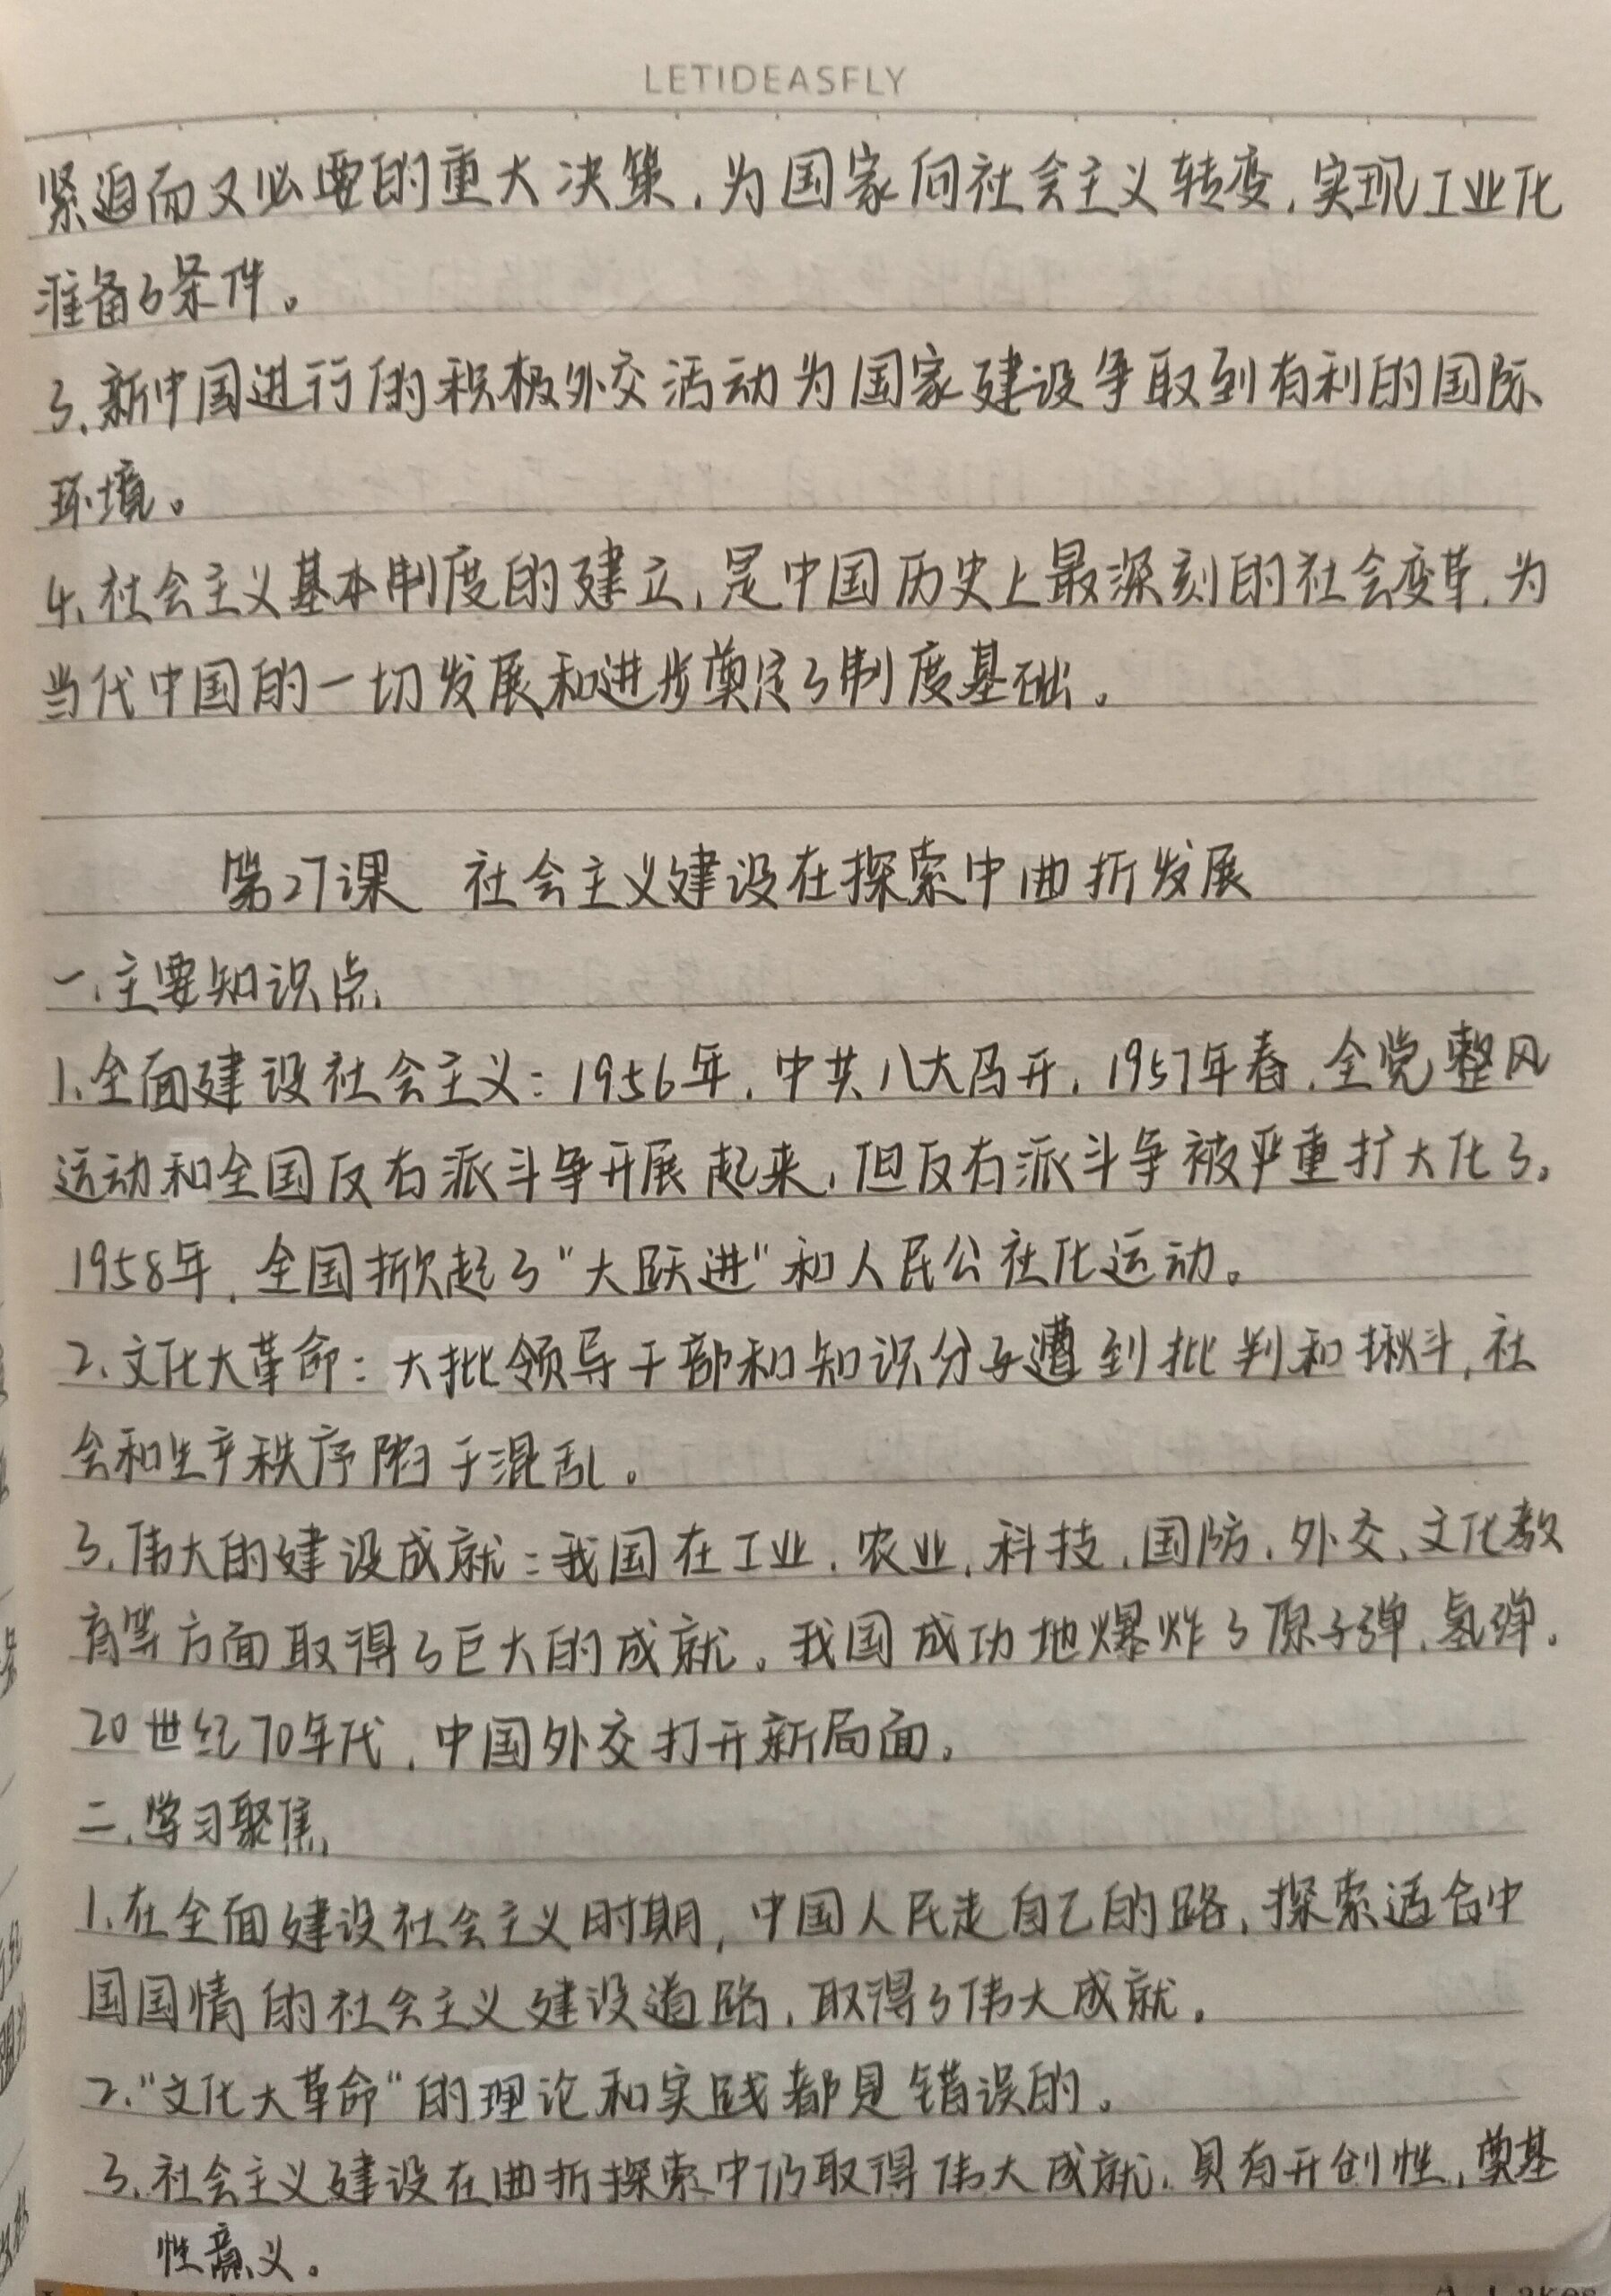 LETIDEASFLY
紧迫而又必要的重大决策,为国家向社会主义转变,实现工业化
准备了条件。
3.新中国进行的积极外交活动为国家建设争取到有利的国际
环境。
4.社会主义基本制度的建立,是中国历史上最深刻的社会变革,为
当代中国的一切发展和进步奠定了制度基础。
第27课 社会主义建设在探索中曲折发展
一.主要知识点
1.全面建设社会主义:1956年,中共八大召开,1957年春,全党整风
运动和全国反右派斗争开展起来,但反右派斗争被严重扩大化了。
1958年,全国掀起了"大跃进"和人民公社化运动。
2.文化大革命:大批领导干部和知识分子遭到批判和揪斗,社
会和生产秩序陷于混乱。
3.伟大的建设成就:我国在工业、农业、科技、国防、外交、文化教
育等方面取得了巨大的成就。我国成功地爆炸了原子弹、氢弹。
20世纪70年代,中国外交打开新局面。
二.学习聚焦
1.在全面建设社会主义时期,中国人民走自己的路,探索适合中
国国情的社会主义建设道路,取得了伟大成就。
2."文化大革命"的理论和实践都是错误的。
3.社会主义建设在曲折探索中仍取得伟大成就,具有开创性,奠基
性意义。